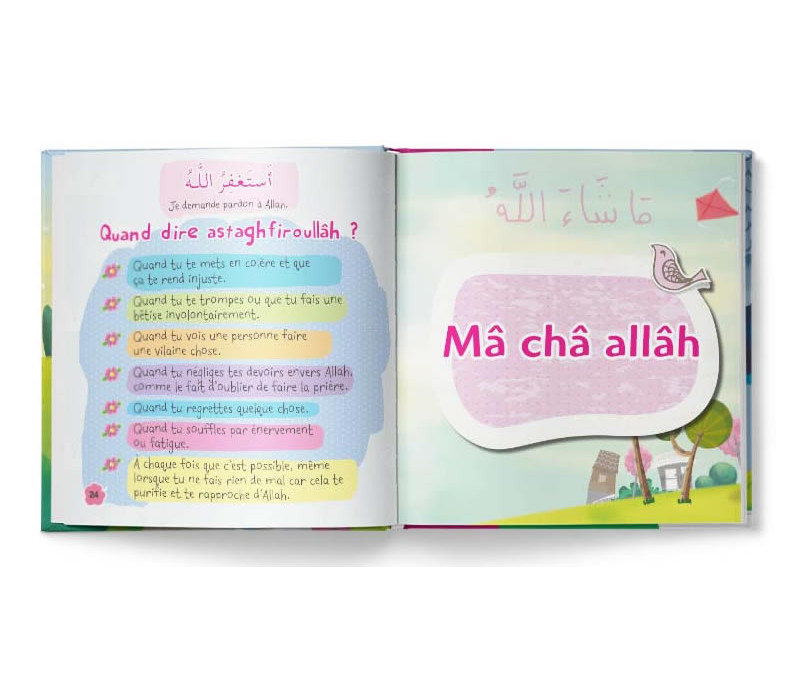 أَسْتَغْفِرُ اللَّهَ
Je demande pardon à Allah.
Quand dire astaghfiroullâh ?
Quand tu te mets en colère et que
ça te rend injuste.
Quand tu te trompes ou que tu fais une
bêtise involontairement.
Quand tu vois une personne faire
une vilaine chose.
Quand tu négliges tes devoirs envers Allah,
comme le fait d'oublier de faire la prière.
Quand tu regrettes quelque chose.
Quand tu souffles par énervement
ou fatigue.
À chaque fois que c'est possible, même
lorsque tu ne fais rien de mal car cela te
purifie et te rapproche d'Allah.
24
مَا شَاءَ اللَّهُ
Mâ châ allâh